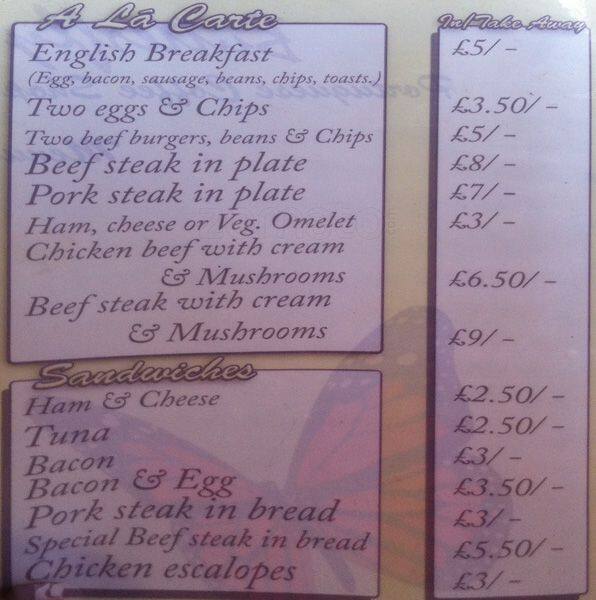 A Lā Carte In/Take Away
English Breakfast £5/-
(Egg, bacon, sausage, beans, chips, toasts.)
Two eggs & Chips £3.50/-
Two beef burgers, beans & Chips £5/-
Beef steak in plate £8/-
Pork steak in plate £7/-
Ham, cheese or Veg. Omelet £3/-
Chicken beef with cream
& Mushrooms £6.50/-
Beef steak with cream
& Mushrooms £9/-
Sandwiches
Ham & Cheese £2.50/-
Tuna £2.50/-
Bacon £3/-
Bacon & Egg £3.50/-
Pork steak in bread £3/-
Special Beef steak in bread £5.50/-
Chicken escalopes £3/-